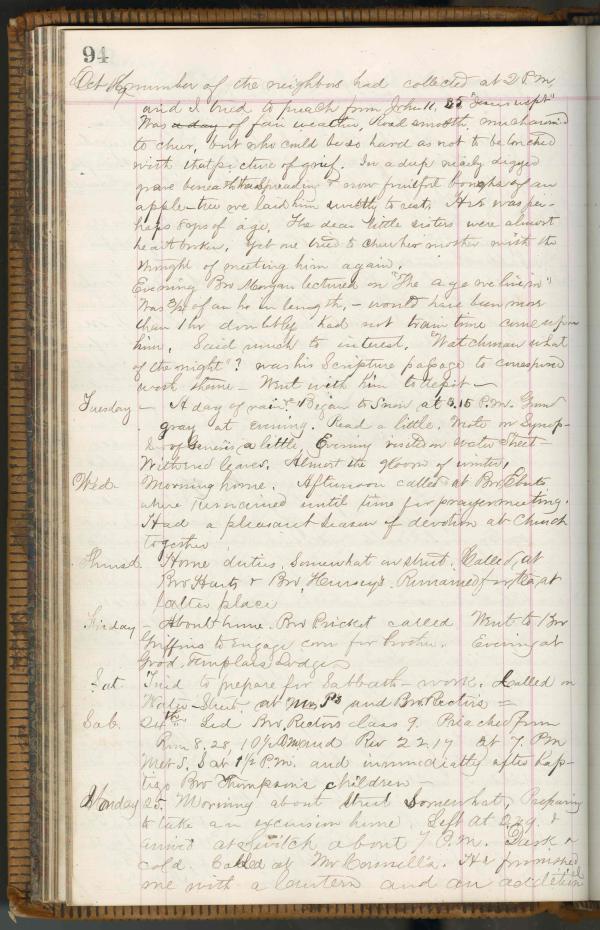 94
Oct number of the neighbors had collected at 2 P.M.
and I tried to preach from John 11, 35 "Jesus wept"
Was a day of fair weather, Road smooth, much around
to cheer, but who could be so hard as not to be touched
with that picture of grief. In a deep nicely digged
grave beneath the spreading & now fruitful boughs of an
apple-tree we laid him quietly to rest. He was per-
haps 8 yrs of age. The dear little sisters were almost
heart broken. Yet one tried to cheer her mother with the
thought of meeting him again.
Evening Bro Morgan lectured on "The age we live in"
Was 3/4 of an ho in length, - would have been more
than 1 hr doubtless had not train time come upon
him. Said much to interest. "Watchman what
of the night"? was his Scripture passage to correspond
with theme - Went with him to depot -
Tuesday - A day of rain & Began to Snow at 3.15 P.M. Grew
gray at evening. Read a little. Wrote on Synop-
sis of Genesis a little, Evening visited on Water Street -
Withered leaves. Almost the gloom of winter,
Wed. Morning home. Afternoon called at Bro.
where I remained until time for prayer meeting.
Had a pleasant season of devotion at Church
together
Thursd. Home duties, Somewhat on street. Called at
Bro Harts & Bro. Hursey's. Remained for tea at
latter place
Friday - About home. Bro Pricket called Went to Bro
Griffins to engage corn for brother. Evening at
Good Templars Lodge
Sat. Tried to prepare for Sabbath - work. Called on
Water - Street, at Mrs P's and Bro Rectors =
Sab. 24th Led Bro. Rectors class 9. Preached from
Rom 8.28, 10 1/2 A.m and Rev 22.17 at 7. PM
Met S. S at 1 1/2 P.M. and immediately after bap-
tize Bro Thompson's children -
Monday 25. Morning about street somewhat, Preparing
to take an excursion home. Left at 2.29. &
arrived at Switch about 7 P.M. Dark &
cold. Called at Mr He furnished
me with a lantern and an additional